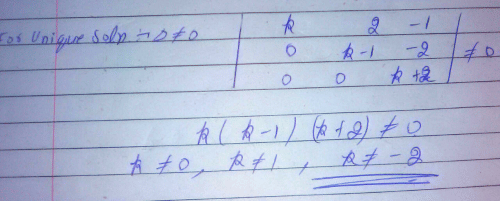 For Unique Soln :- D ≠ 0
| k 2 -1 |
| 0 k-1 -2 | ≠ 0
| 0 0 k+2 |
k ( k-1) (k+2) ≠ 0
k ≠ 0, k ≠ 1, k ≠ -2